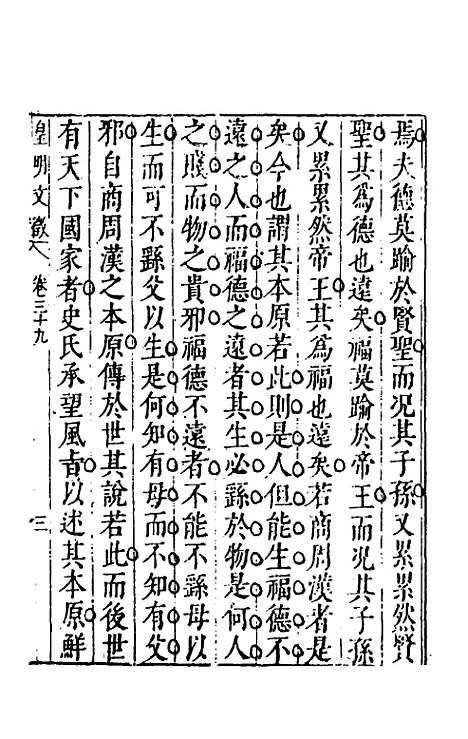 焉夫德莫踰於賢聖而况其子孫又累累然賢
聖其為德也遠矣福莫踰於帝王而况其子孫
又累累然帝王其為福也遠矣若商周漢者是
矣今也謂其本原若此則是人但能生福德不
遠之人而福德之遠者其生必繇於物是何人
之賤而物之貴邪福德不遠者不能不繇母以
生而可不繇父以生是何知有母而不知有父
邪自商周漢之本原傳於世其說若此而後世
有天下國家者史氏承望風㫖以述其本原鮮
皇明文徵 卷三十九 三